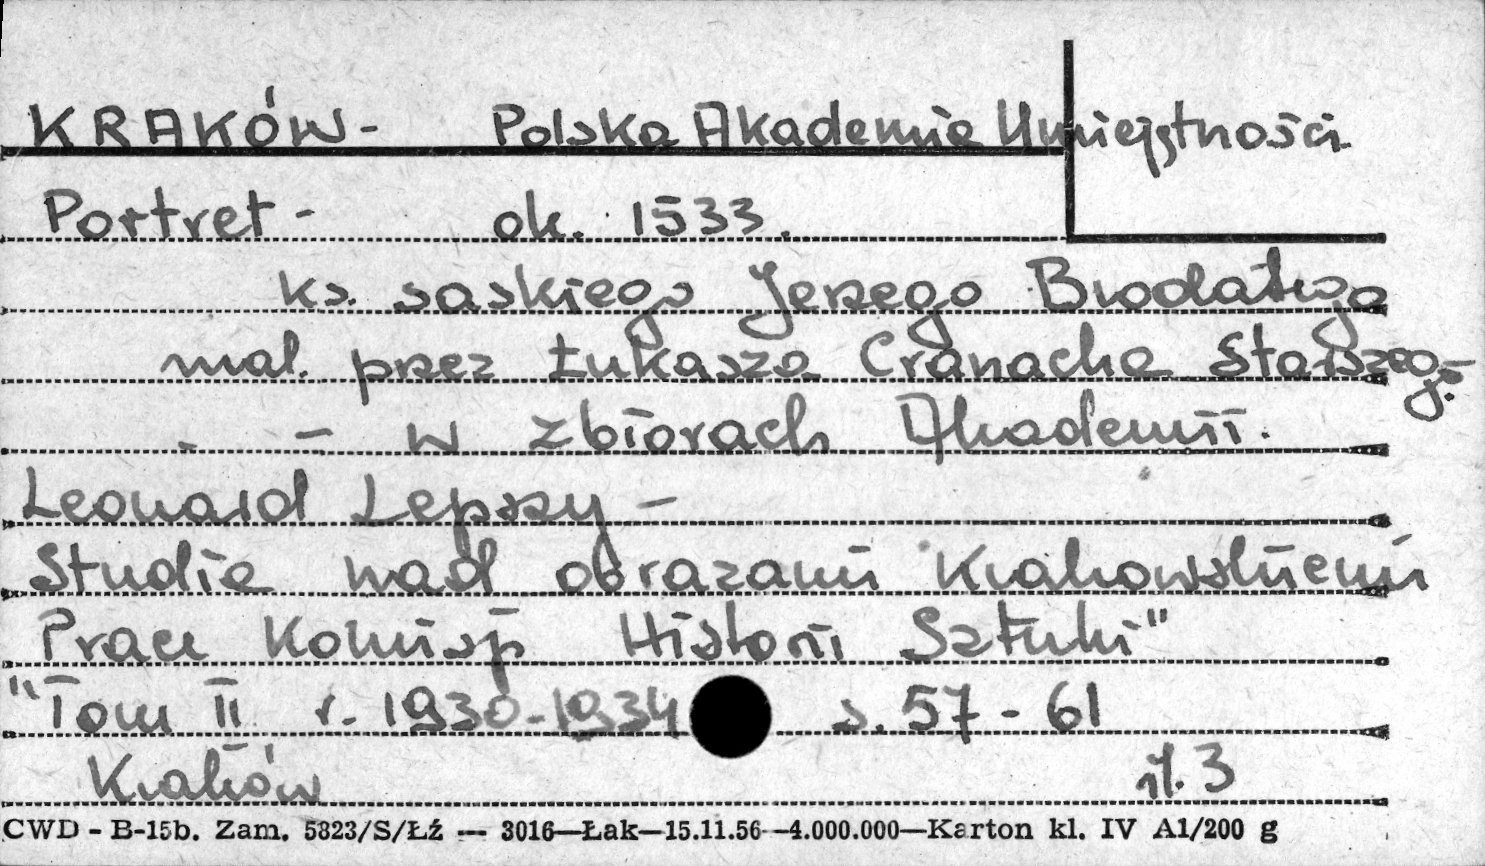 KRAKÓW - Polska Akademia Umiejętności
Portret - ok. 1533.
ks. saskiego Jerzego Brodatego
mal. przez Łukasza Cranacha Starszego -
. - w zbiorach Akademii.
Leonard Lepszy -
Studia nad obrazami krakowskiemi
Prace Komisji Historii Sztuki"
"Tom II r. 1930-1934 s. 57 - 61
Kraków il. 3
CWD - B-15b. Zam. 5823/S/Łź --- 3016—Łak—15.11.56 -4.000.000—Karton kl. IV A1/200 g